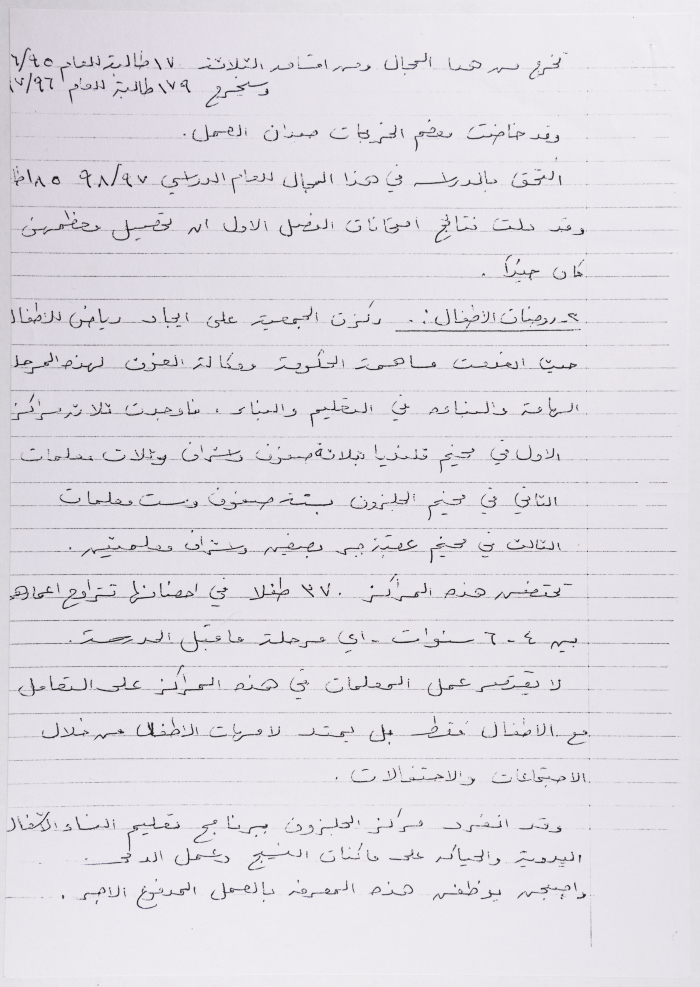 تخرج من هذا المجال ومن اقسامه الثلاثة ١٧ طالبة للعام ٦/٩٥
وستخرج ١٧٩ طالبة للعام ٧/٩٦
وقد خاضت معظم الخريجات ميدان العمل.
التحق بالدراسة في هذا المجال للعام الدراسي ٩٨/٩٧ ١٨٥
وقد دلت نتائج امتحانات الفصل الاول ان تحصيل معظمهن
كان جيدًا .
٢- روضات الأطفال: . ركزت الجمعية على ايجاد رياض للاطفال
حيث انعدمت مساهمة الحكومة ووكالة الغوث لهذه المرحلة
الهامة والبناءه في التعليم والبناء ، فأوجدت ثلاث مراكز
الاول في مخيم قلنديا بثلاثة صفوف واشراف وثلاث معلمات
الثاني في مخيم الجلزون بستة صفوف وست معلمات
الثالث في مخيم عقبة جبر بصفين واشراف معلمتين .
تحتضن هذه المراكز ٣٧٠ طفلا في احضانها تتراوح اعمارهم
بين ٤ - ٦ سنوات - اي مرحلة ما قبل المدرسة .
لا يقتصر عمل المعلمات في هذه المراكز على التعامل
مع الأطفال فقط بل يمتد لامهات الأطفال من خلال
الاجتماعات والاحتفالات .
وقد انفرد مركز الجلزون ببرنامج تعليم النساء الاشغال
اليدوية والحياكه على ماكنات النسيج وعمل الدمى .
واصبحن يوظفن هذه المعرفه بالعمل المدفوع الاجر .